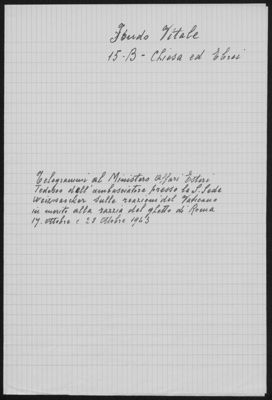 Fondo Vitale
15-B - Chiesa ed Ebrei
Telegrammi al Ministero Affari Esteri
Tedesco dell'ambasciatore presso la S. Sede
Weizsaecker sulle reazioni del Vaticano
in merito alla razzia del ghetto di Roma
17 ottobre e 28 ottobre 1943